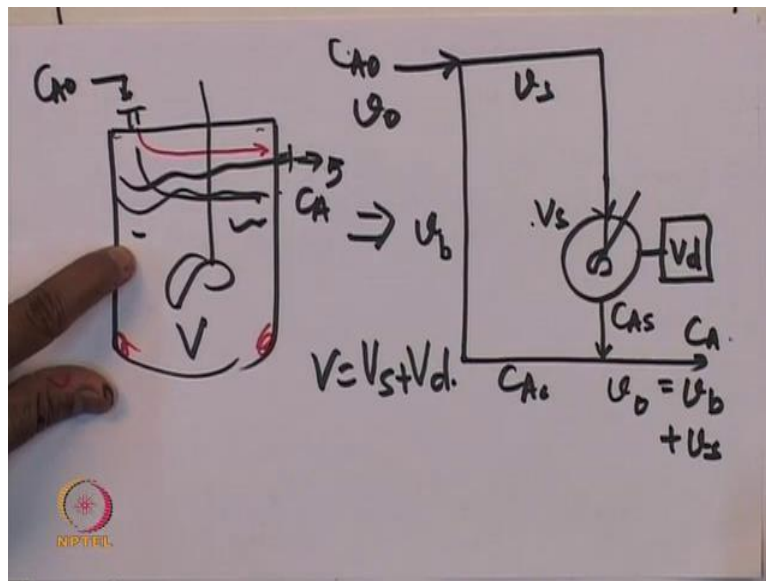 CA0
5
CA
V
⇒
CA0
υ0
υs
υb
Vs
Vd
CAs
CA.
V=Vs+Vd.
CA0
υ0 = υb
+ υs
NPTEL